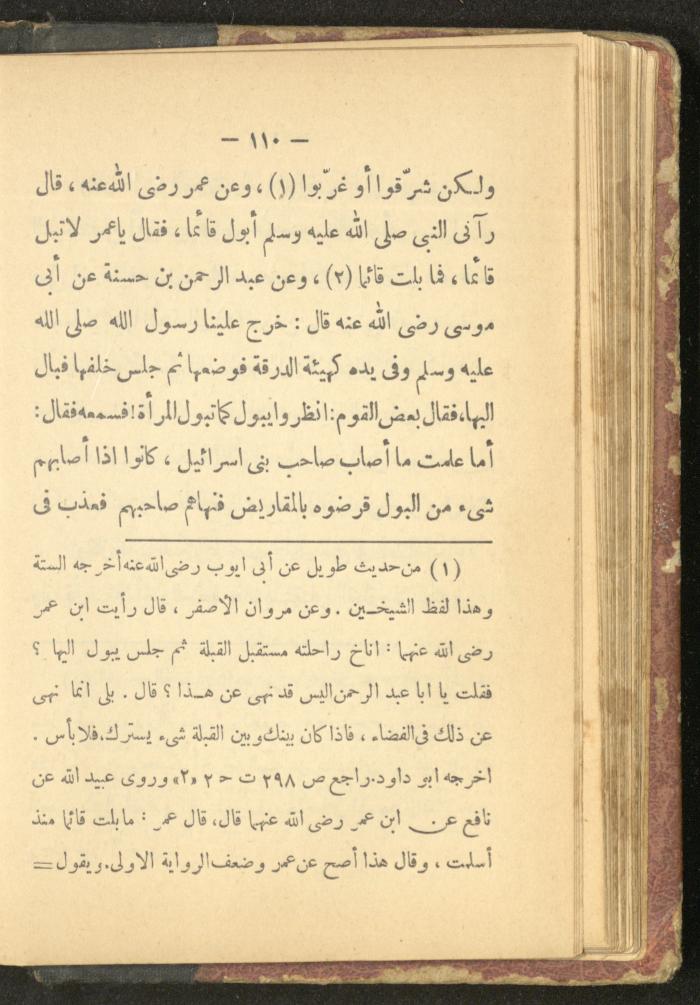 — ١١٠ —
ولكن شرّقوا أو غرّبوا (١) ، وعن عمر رضى الله عنه ، قال
رآنى النبى صلى الله عليه وسلم أبول قائما ، فقال ياعمر لاتبل
قائما ، فما بلت قائما (٢) ، وعن عبد الرحمن بن حسنة عن أبى
موسى رضى الله عنه قال : خرج علينا رسول الله صلى الله
عليه وسلم وفى يده كهيئة الدرقة فوضعها ثم جلس خلفها فبال
اليها،فقال بعض القوم:انظروا يبول كما تبول المرأة!فسمعه فقال:
أما علمت ما أصاب صاحب بنى اسرائيل ، كانوا اذا أصابهم
شىء من البول قرضوه بالمقاريض فنهاهم صاحبهم فعذب فى
(١) من حديث طويل عن أبى ايوب رضى الله عنه أخرجه الستة
وهذا لفظ الشيخين . وعن مروان الأصفر ، قال رأيت ابن عمر
رضى الله عنهما : اناخ راحلته مستقبل القبلة ثم جلس يبول اليها ؟
فقلت يا ابا عبد الرحمن اليس قد نهى عن هذا ؟ قال . بلى انما نهى
عن ذلك فى الفضاء ، فاذا كان بينك وبين القبلة شىء يسترك،فلا بأس .
اخرجه ابو داود.راجع ص ٢٩٨ ت ح ٢ «٢» وروى عبيد الله عن
نافع عن ابن عمر رضى الله عنهما قال، قال عمر : ما بلت قائما منذ
أسلمت ، وقال هذا أصح عن عمر وضعف الرواية الاولى.ويقول =